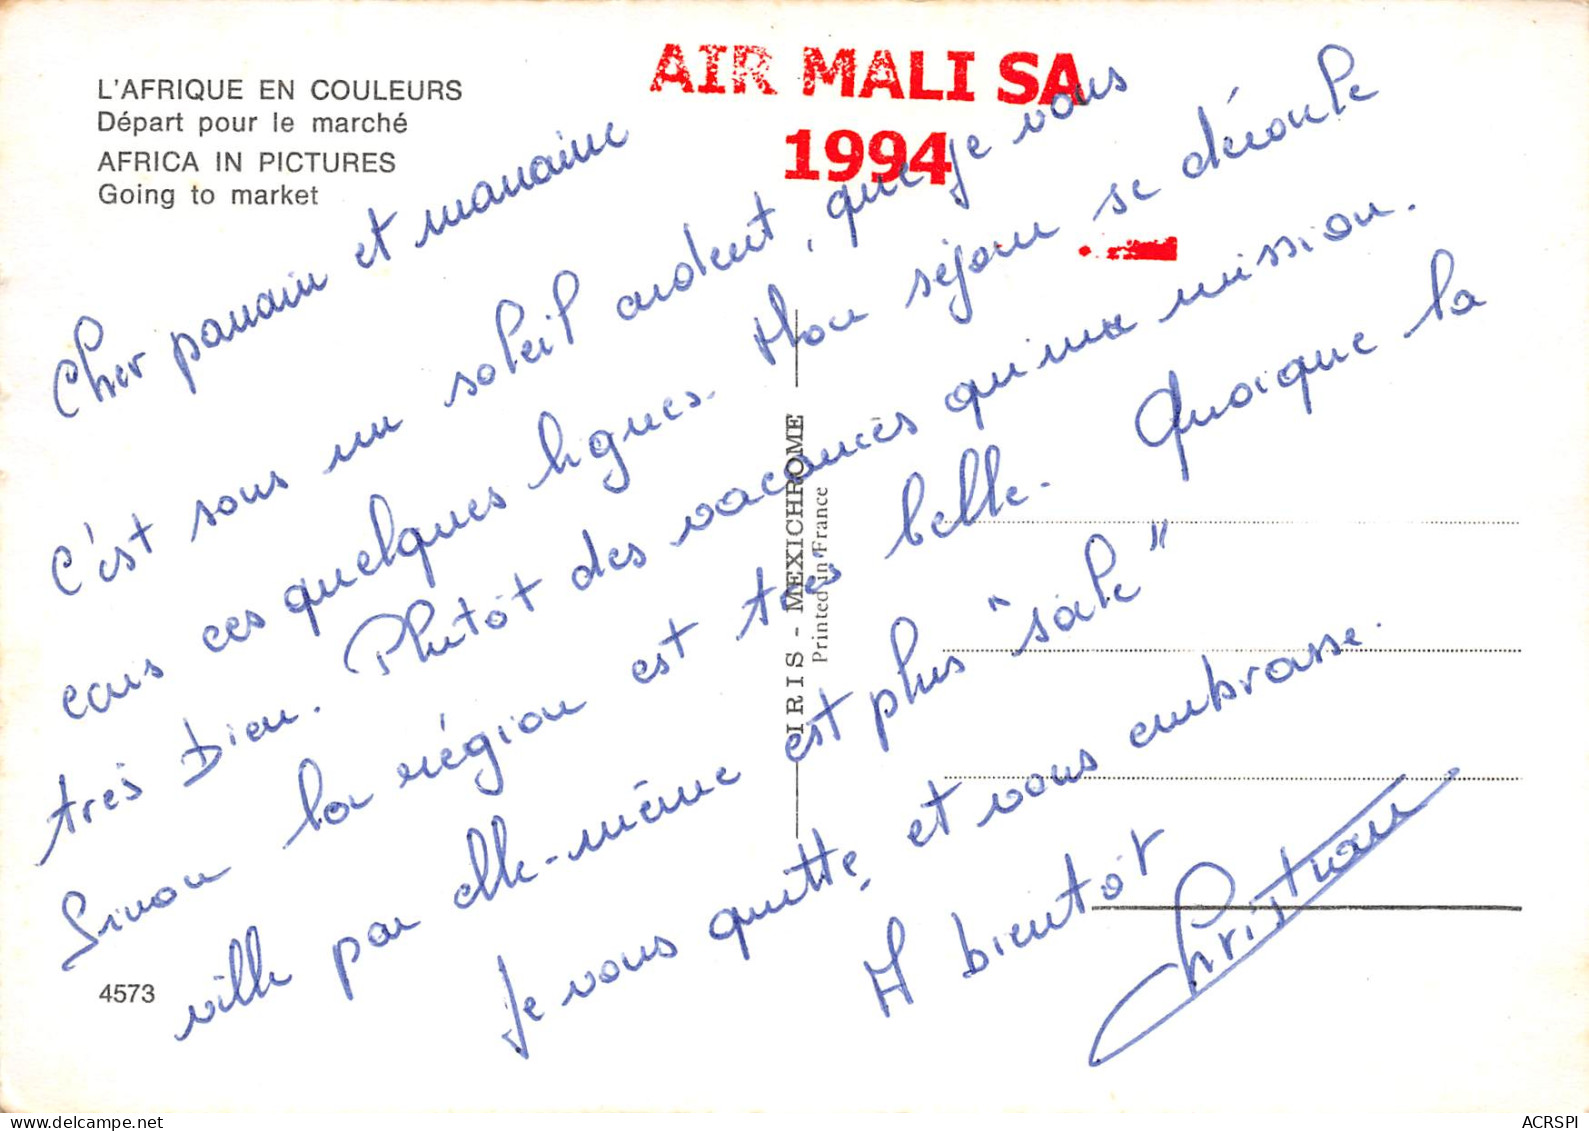 L'AFRIQUE EN COULEURS
Départ pour le marché
AFRICA IN PICTURES
Going to market
AIR MALI SA
1994
Cher parrain et marraine
C'est sous un soleil ardent, que je vous
ecris ces quelques lignes. Mon séjour se déroule
très bien. Plutôt des vacances qu'une mission.
Sinon la région est très belle. Quoique la
ville par elle-même est plus "sale"
Je vous quitte, et vous embrasse.
A bientôt
Christian
IRIS - MEXICHROME
Printed in France
4573
ACRSPI